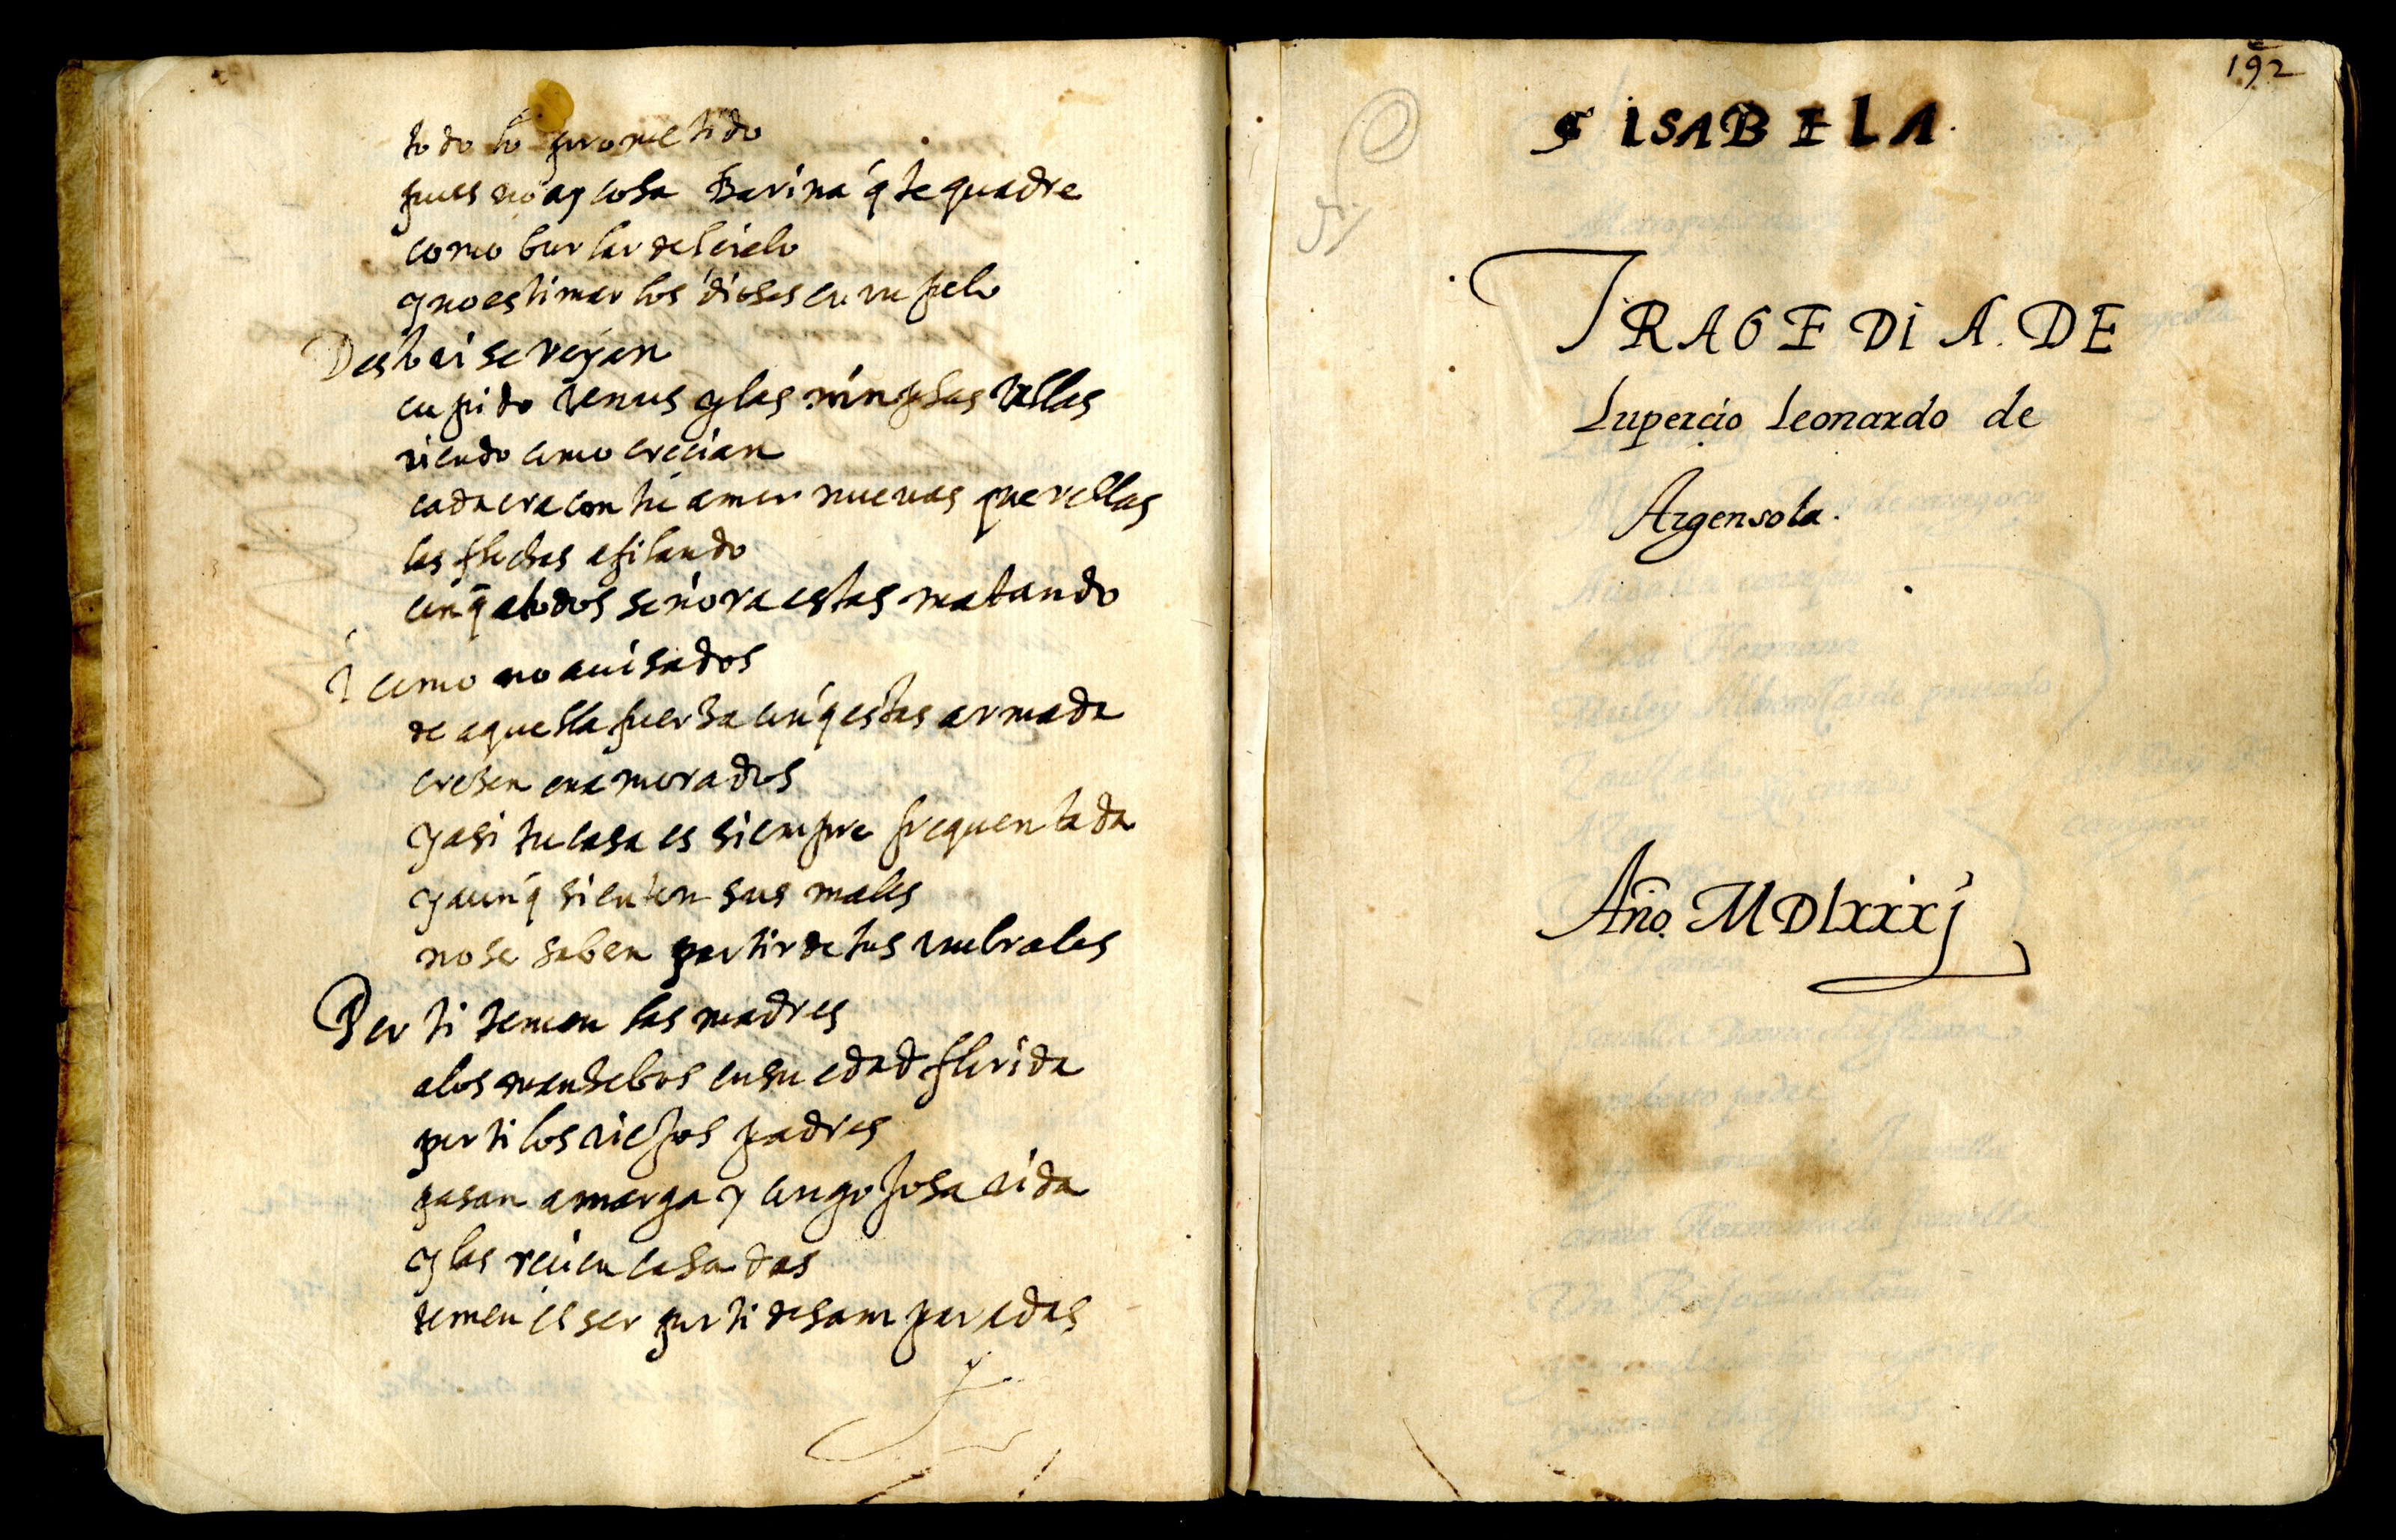 todo lo prometido
pues no ay cosa Barina q̃ te quadre
como burlar del cielo
y no estimar los dioses en un pelo
Desto ai se reyan
cupido venus y las nimphas bellas
viendo como crecian
cada ora con tu amor nueuas querellas
las flechas afilando
con q̃ a todos señora estas matando
I como no auisados
de aquella fuerza con q̃ estas armada
cresen enamorados
y asi tu casa es siempre frequentada
y aunq̃ sienten sus males
no se saben partir de tus umbrales
Por ti temen las madres
a los mansebos en su edad florida
por ti los viejos padres
pasan amarga y congojosa vida
y las recien casadas
temen el ser por ti desamparadas
192
ISABELA.
TRAGEDIA. DE
Lupercio Leonardo de
Argensola.
Año. MDlxxxj